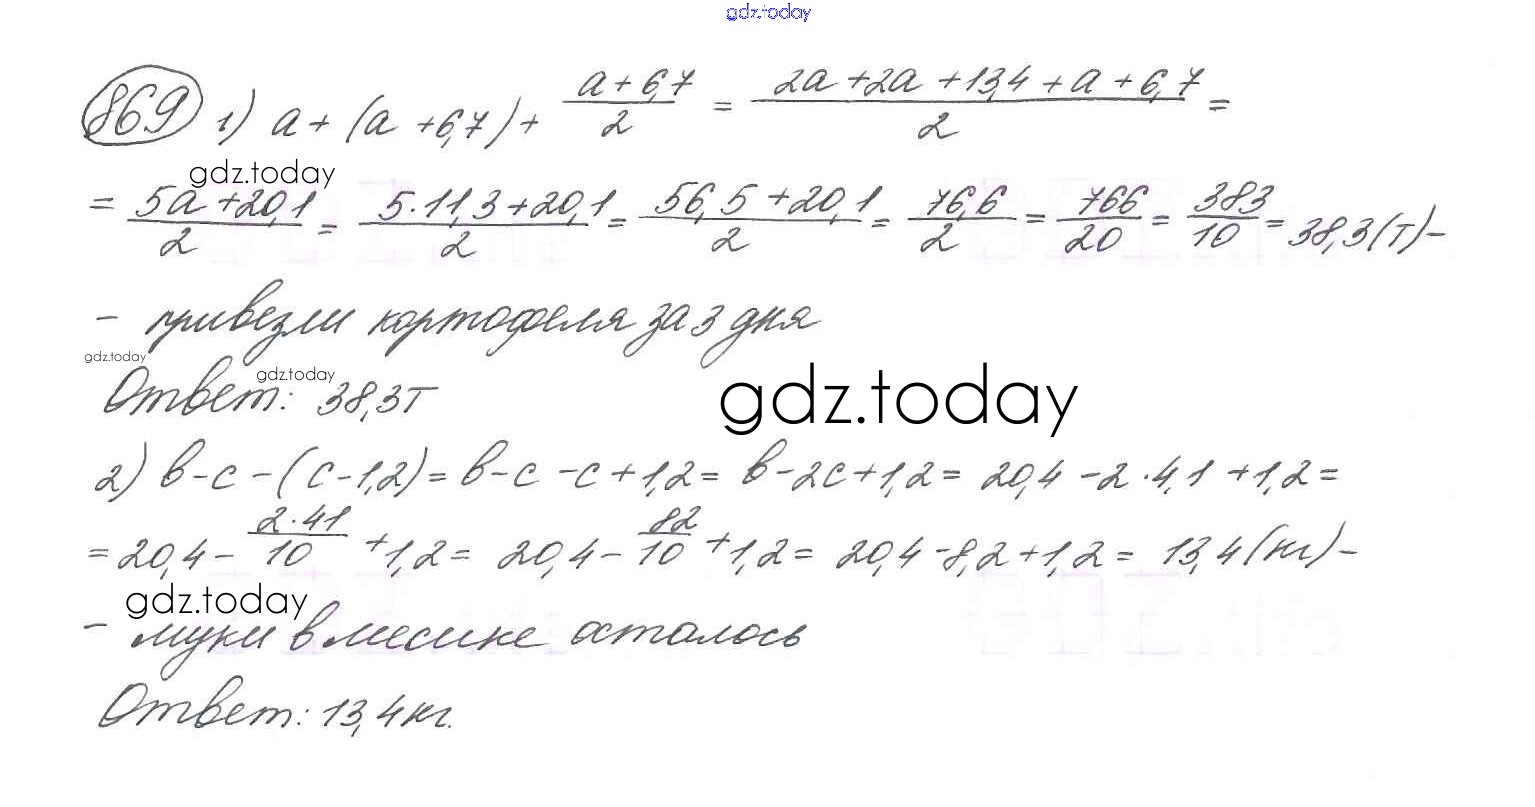 gdz.today
869 1) a + (a + 6,7) + (a + 6,7)/2 = (2a + 2a + 13,4 + a + 6,7)/2 =
gdz.today
= (5a + 20,1)/2 = (5·11,3 + 20,1)/2 = (56,5 + 20,1)/2 = 76,6/2 = 766/20 = 383/10 = 38,3 (т) –
– привезли картофеля за 3 дня
gdz.today
gdz.today
Ответ: 38,3т
gdz.today
2) в – с – (с – 1,2) = в – с – с + 1,2 = в – 2с + 1,2 = 20,4 – 2·4,1 + 1,2 =
= 20,4 – 2·41/10 + 1,2 = 20,4 – 82/10 + 1,2 = 20,4 – 8,2 + 1,2 = 13,4 (кг) –
gdz.today
– муки в мешке осталось
Ответ: 13,4 кг.